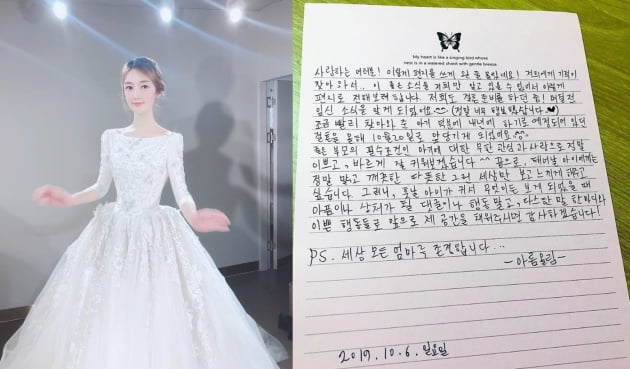 My heart is like a singing bird whose
nest is in a watered shoot with gentle breeze
사랑하는 여러분! 이렇게 편지를 쓰게 될 줄 몰랐네요! 저희에게 기적이
찾아 와서.. 이 좋은 소식을 저희만 알고 있을 수 없어서 이렇게
편지로 전해보려 합니다. 저희도 결혼 준비를 하던 중! 며칠전
임신 소식을 알게 되었어요 (정말 너무 행복했답니다..)
조금 빨리 찾아와 준 아기 덕분에 내년에 하기로 예정되어 있던
결혼을 올해 10월로 앞당기게 되었어요
좋은 부모의 필수조건인 아기에 대한 무한 관심과 사랑으로 정말
이쁘고, 바르게 잘 키워보겠습니다 ^^ 끝으로, 태어날 아이에게는
정말 밝고 깨끗한 따뜻한 그런 세상만 보고 느끼게 해주고
싶습니다. 그러니, 훗날 아이가 커서 무엇이든 보게 되었을 때
아픔이나 상처가 될 댓글이나 행동 말고, 따스한 말 한마디와
이쁜 행동들로 앞으로 제 공간을 채워주시면 감사하겠습니다!
PS. 세상 모든 엄마를 존경합니다...
-아름올림-
2019. 10. 6. 일요일